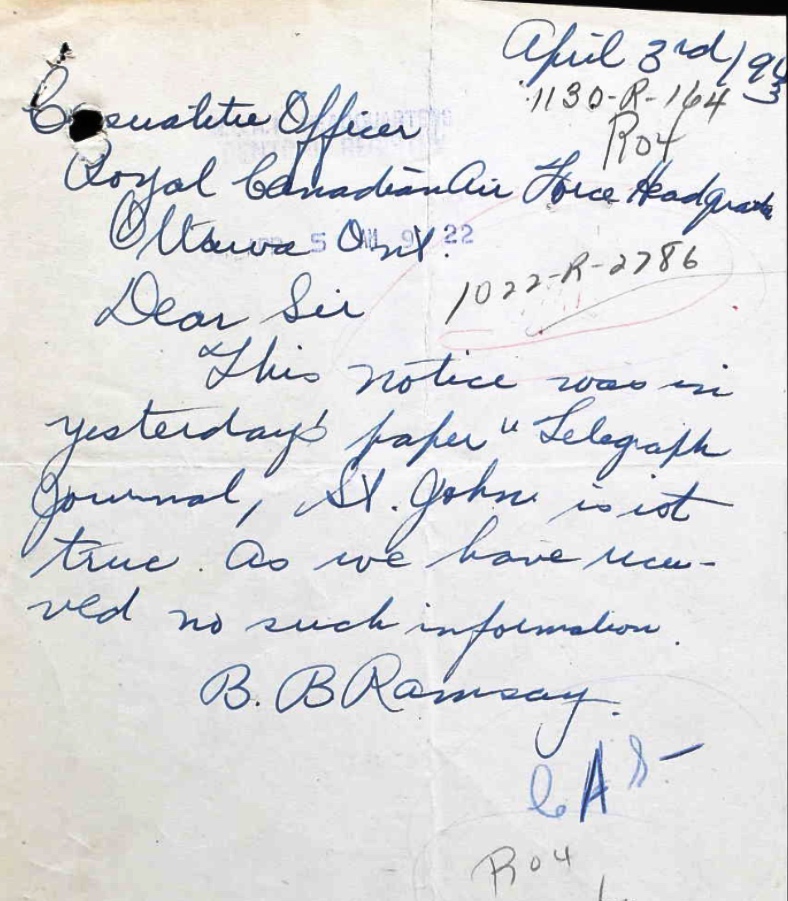 April 3rd/943
1130-R-164
R04
Casualitie Officer
Royal Canadian Air Force Headquarte
Ottawa Ont.
5 9 22
Dear Sir
1022-R-2786
This notice was in
yesterday's paper "Telegraph
Journal, St. John is it
true. As we have recei-
ved no such information.
B. B Ramsay.
CAS
R04